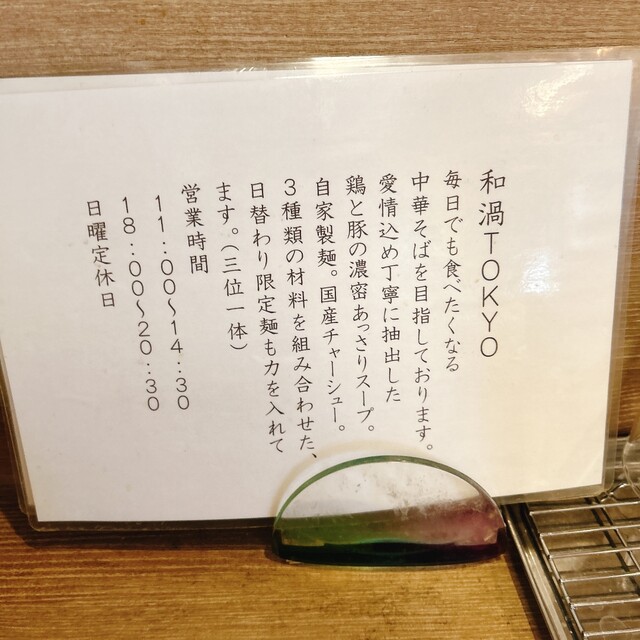 和渦TOKYO
毎日でも食べたくなる
中華そばを目指しております。
愛情込め丁寧に抽出した
鶏と豚の濃密あっさりスープ。
自家製麺。国産チャーシュー。
3種類の材料を組み合わせた、
日替わり限定麺も力を入れて
ます。(三位一体)
営業時間
11:00〜14:30
18:00〜20:30
日曜定休日